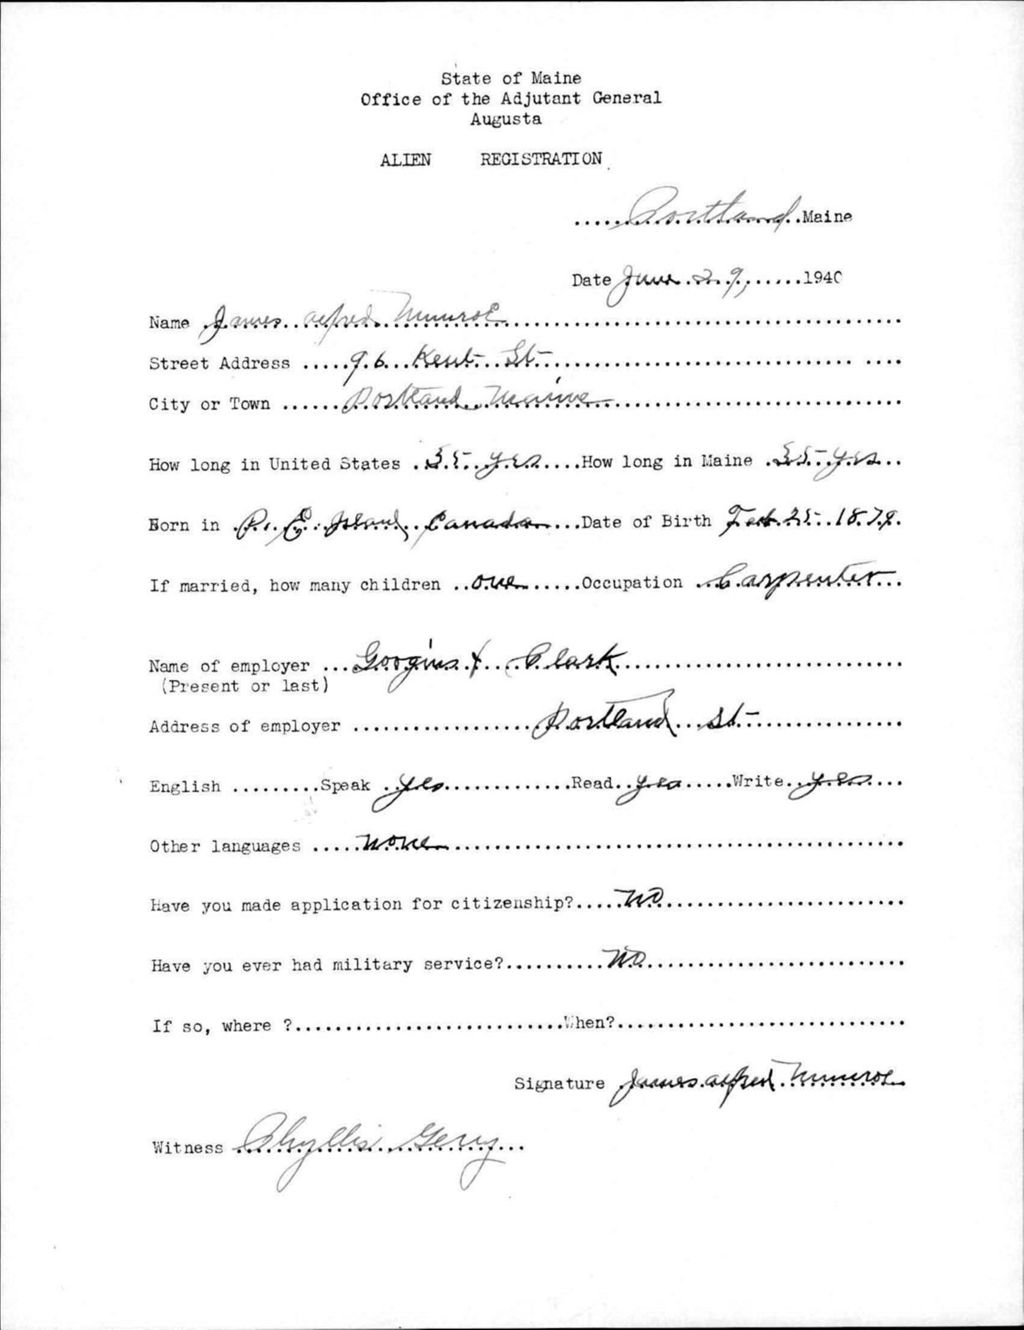 State of Maine
Office of the Adjutant General
Augusta
ALIEN REGISTRATION
Portland Maine
Date June 29, 1940
Name James alfred Munroe
Street Address 96 Kent St
City or Town Portland Maine
How long in United States 35 yrs How long in Maine 35 yrs
Born in P. E. Island, Canada Date of Birth Feb 25 1879
If married, how many children one Occupation Carpenter
Name of employer Googins & Clark
(Present or last)
Address of employer Portland St
English Speak yes Read yes Write yes
Other languages none
Have you made application for citizenship? NO
Have you ever had military service? NO
If so, where ? When?
Signature James alfred Munroe
Witness Phyllis Gery